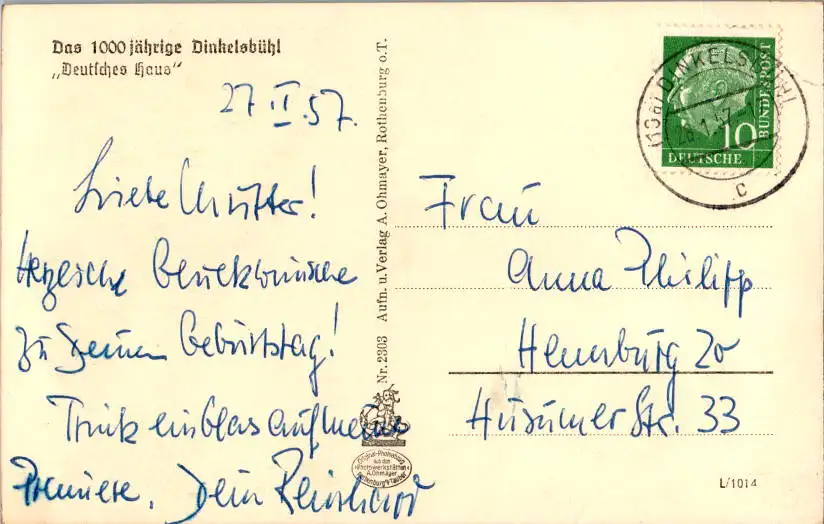 Das 1000 jährige Dinkelsbühl
„Deutsches Haus“
27.II.57.
Liebe Mutter!
Herzliche Glückwünsche
zu Deinem Geburtstag!
Trink ein Glas auf meine
Premiere. Dein Reinhard
Nr. 2303 Aufn. u. Verlag A. Ohmayer, Rothenburg o.T.
Original-Photoabzug
aus den
Photowerkstätten
A. Ohmayer
Rothenburg o/Tauber
DINKELSBÜHL
c
10
DEUTSCHE
BUNDESPOST
Frau
Anna Philipp
Hamburg 20
Husumer Str. 33
L/1014